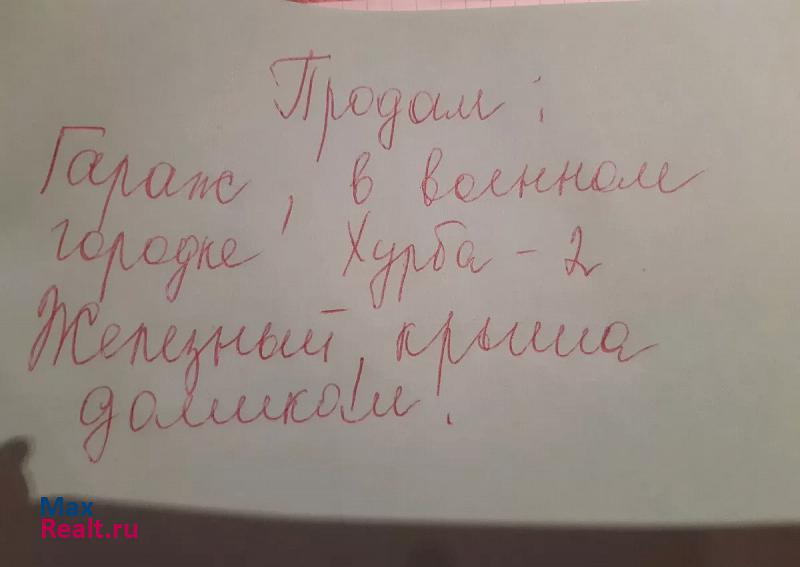 Продам:
Гараж, в военном
городке Хурба-2
Железный, крыша
домиком!
Max
Realt.ru